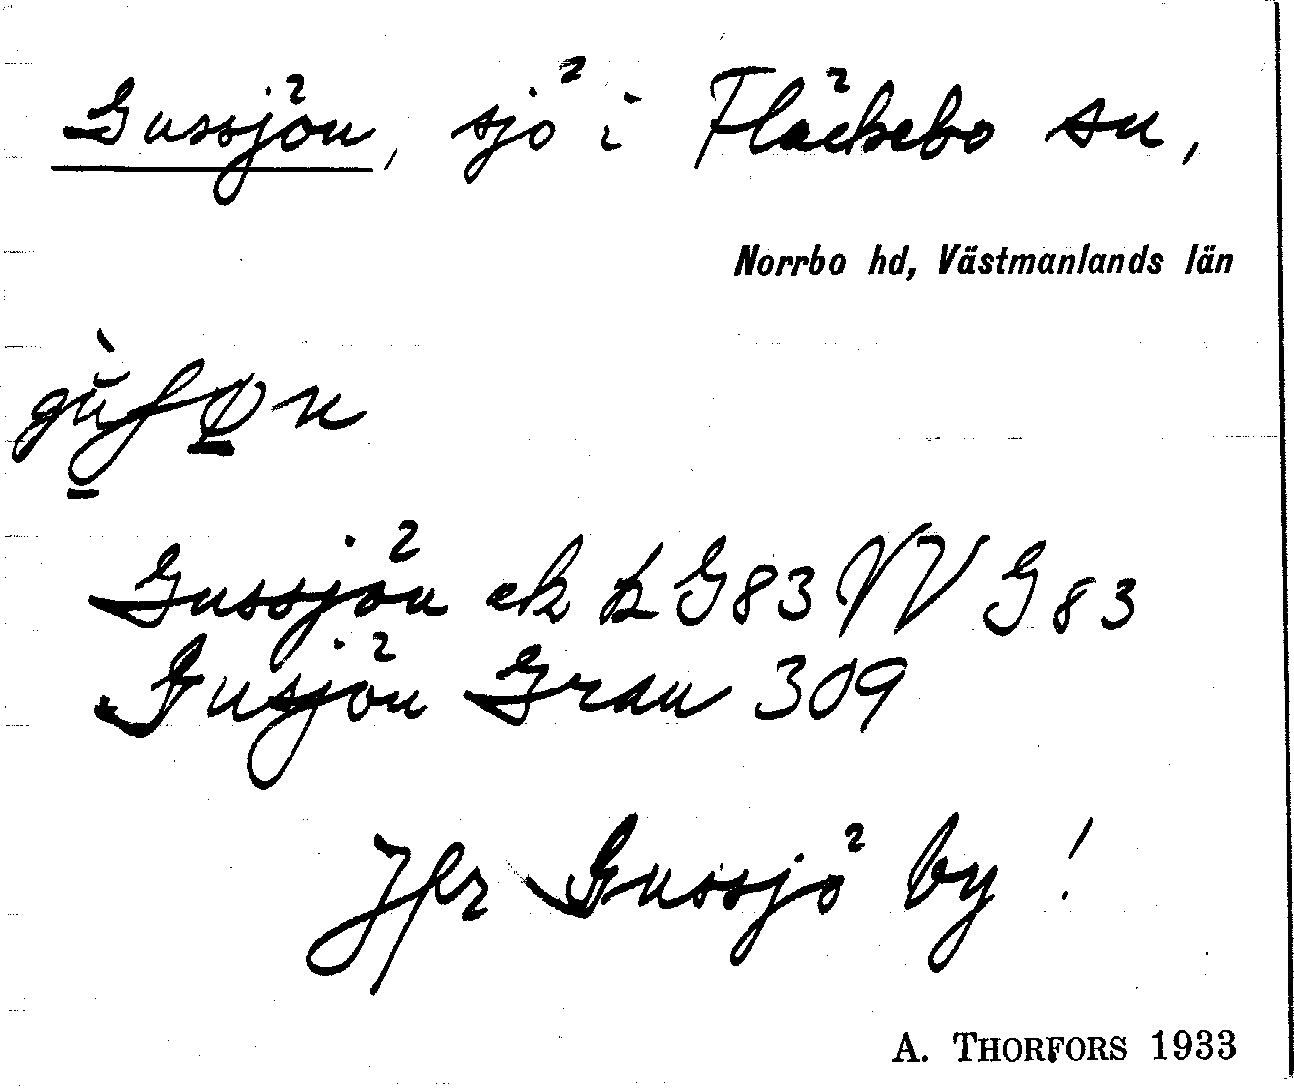 Gussjön, sjö i Fläckebo sn,
Norrbo hd, Västmanlands län
Gussjön ek k G83 VV G83
Gusjön Gran 309
Jfr Gussjö by!
A. THORFORS 1933